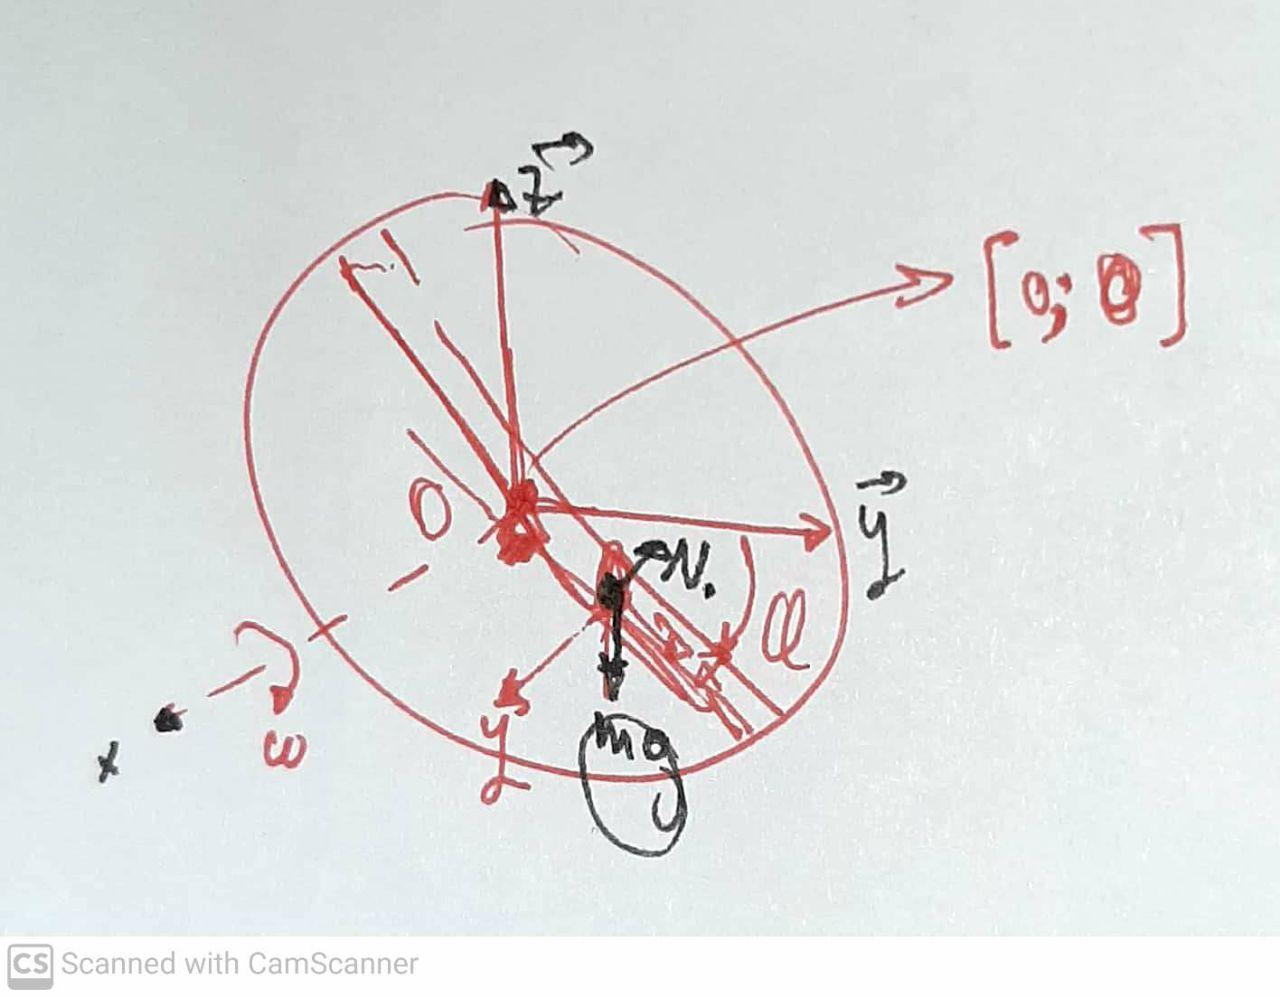 z
[0; 0]
O
y
N.
θ
ω
x
y
mg
CS Scanned with CamScanner